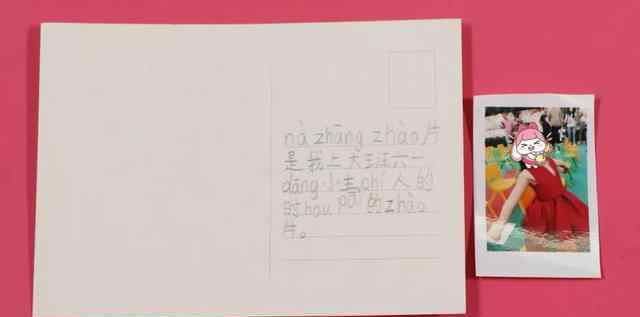 nà zhāng zhào片
是我上大班六一
dāng小主chí人的
时hou pāi的zhào
片。